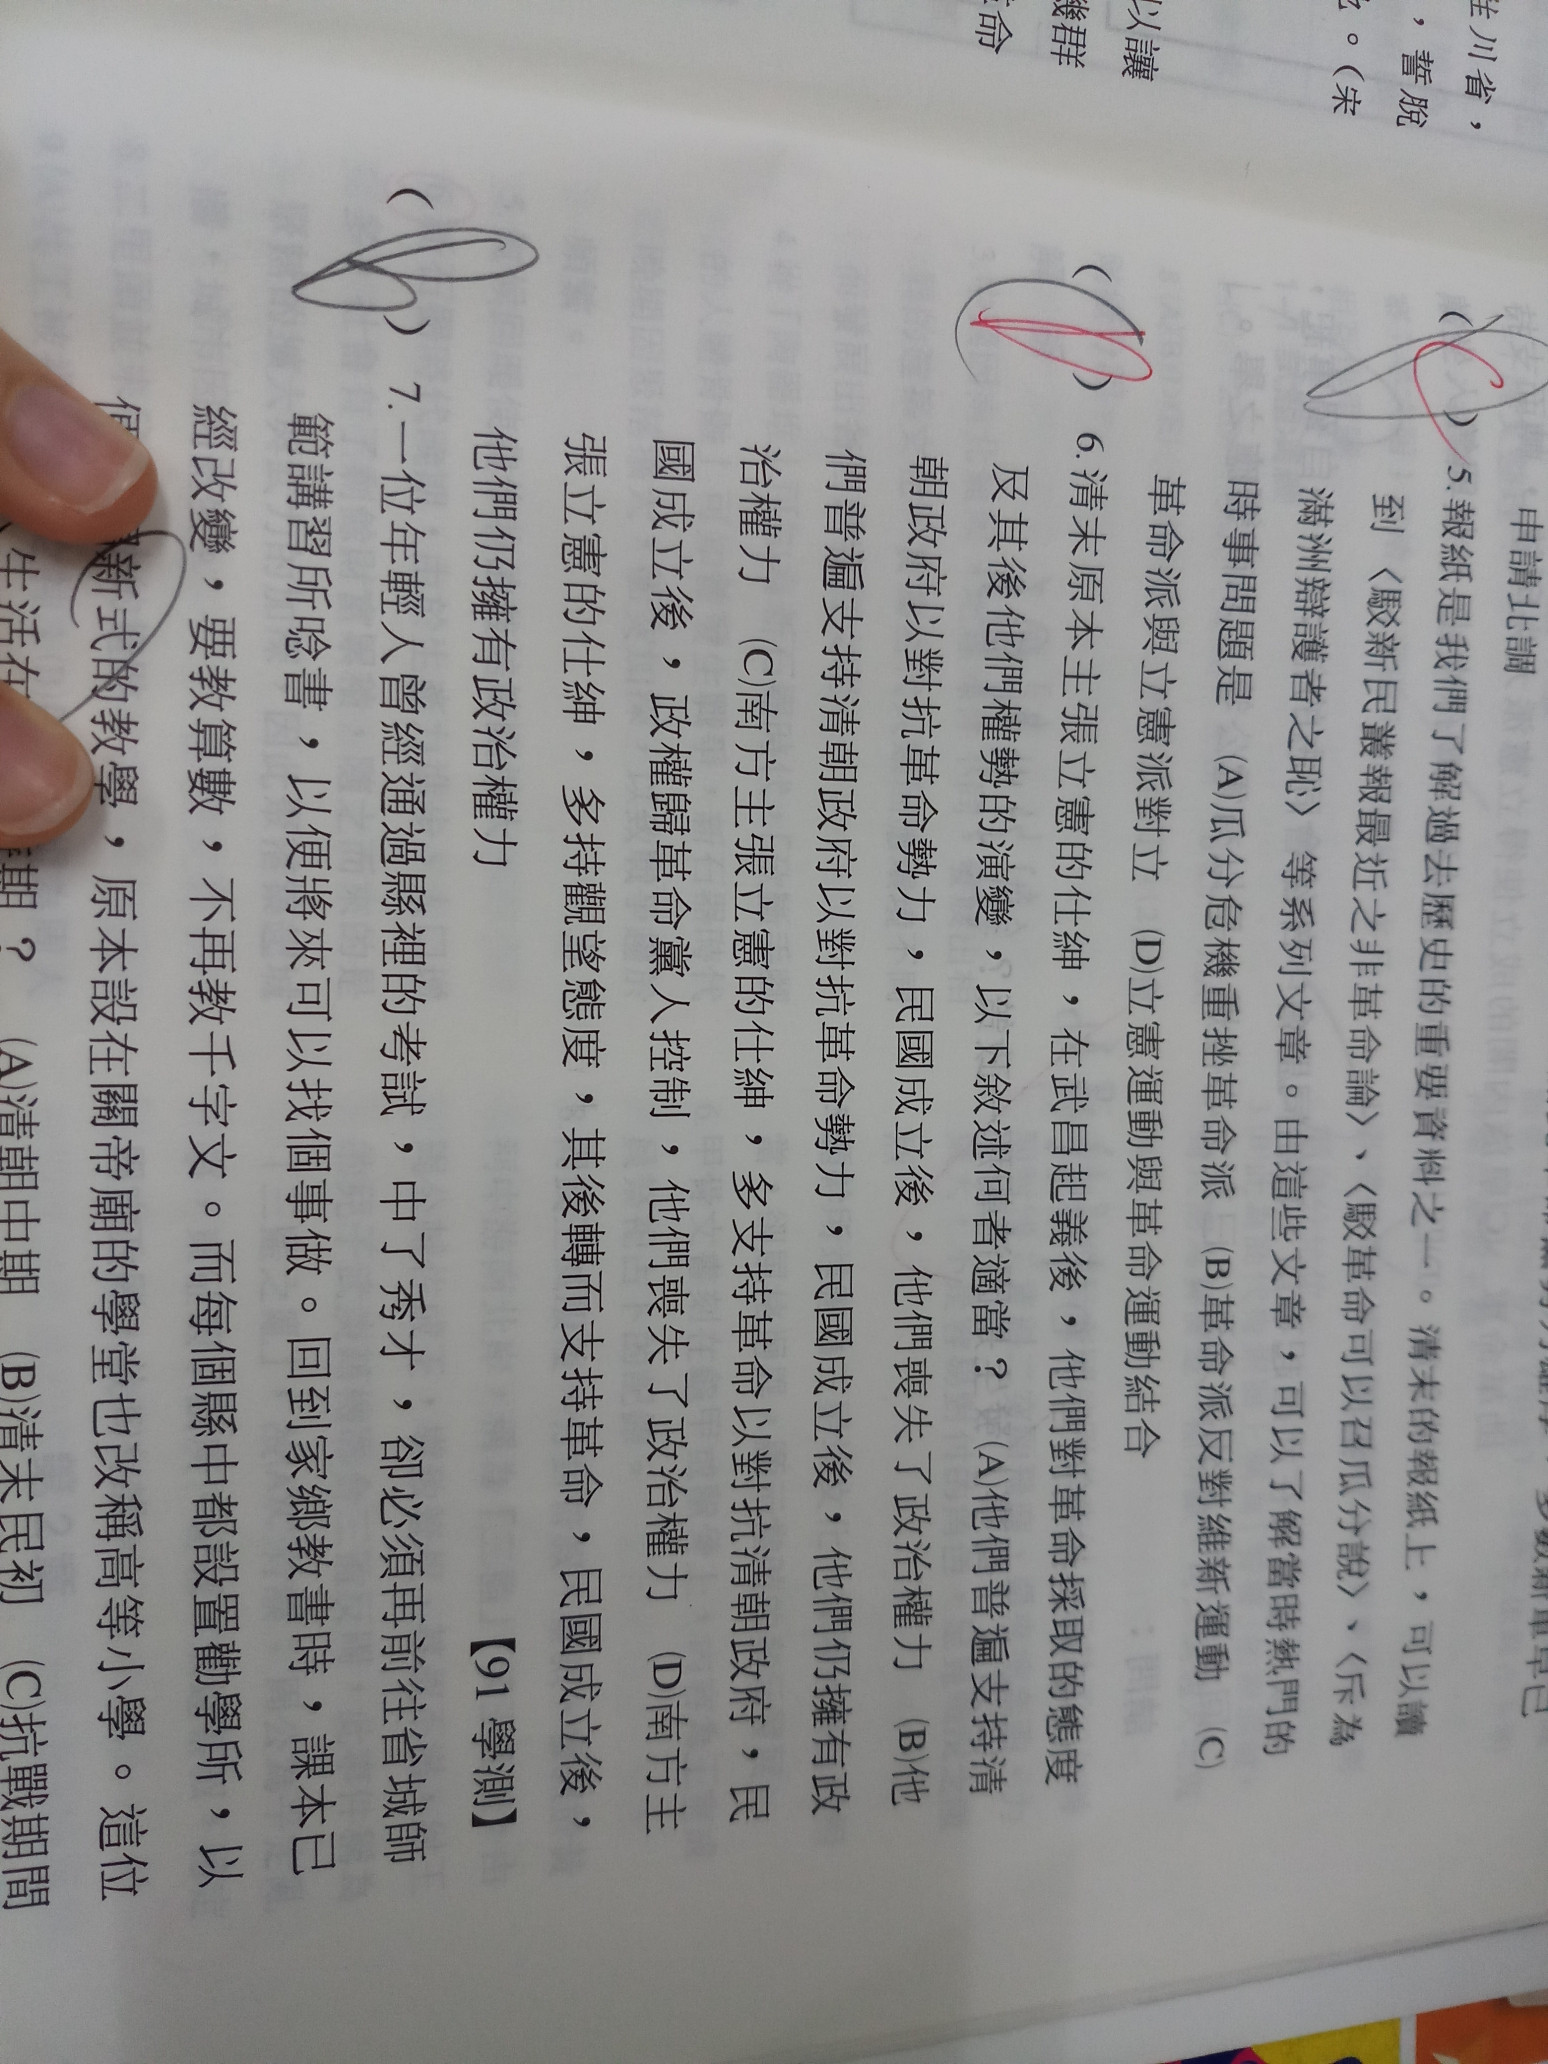 生川省，
，誓脫
。（宋
以讓
幾群
革命
申請北調
( ) 5.報紙是我們了解過去歷史的重要資料之一。清末的報紙上，可以讀
到〈駁新民叢報最近之非革命論〉、〈駁革命可以召瓜分說〉、〈斥為
滿洲辯護者之恥〉等系列文章。由這些文章，可以了解當時熱門的
時事問題是 (A)瓜分危機重挫革命派 (B)革命派反對維新運動 (C)
革命派與立憲派對立 (D)立憲運動與革命運動結合
( ) 6.清末原本主張立憲的仕紳，在武昌起義後，他們對革命採取的態度
及其後他們權勢的演變，以下敘述何者適當？ (A)他們普遍支持清
朝政府以對抗革命勢力，民國成立後，他們喪失了政治權力 (B)他
們普遍支持清朝政府以對抗革命勢力，民國成立後，他們仍擁有政
治權力 (C)南方主張立憲的仕紳，多支持革命以對抗清朝政府，民
國成立後，政權歸革命黨人控制，他們喪失了政治權力 (D)南方主
張立憲的仕紳，多持觀望態度，其後轉而支持革命，民國成立後，
他們仍擁有政治權力 【91 學測】
( ) 7.一位年輕人曾經通過縣裡的考試，中了秀才，卻必須再前往省城師
範講習所唸書，以便將來可以找個事做。回到家鄉教書時，課本已
經改變，要教算數，不再教千字文。而每個縣中都設置勸學所，以
新式的教學，原本設在關帝廟的學堂也改稱高等小學。這位
生活在 期？ (A)清朝中期 (B)清末民初 (C)抗戰期間